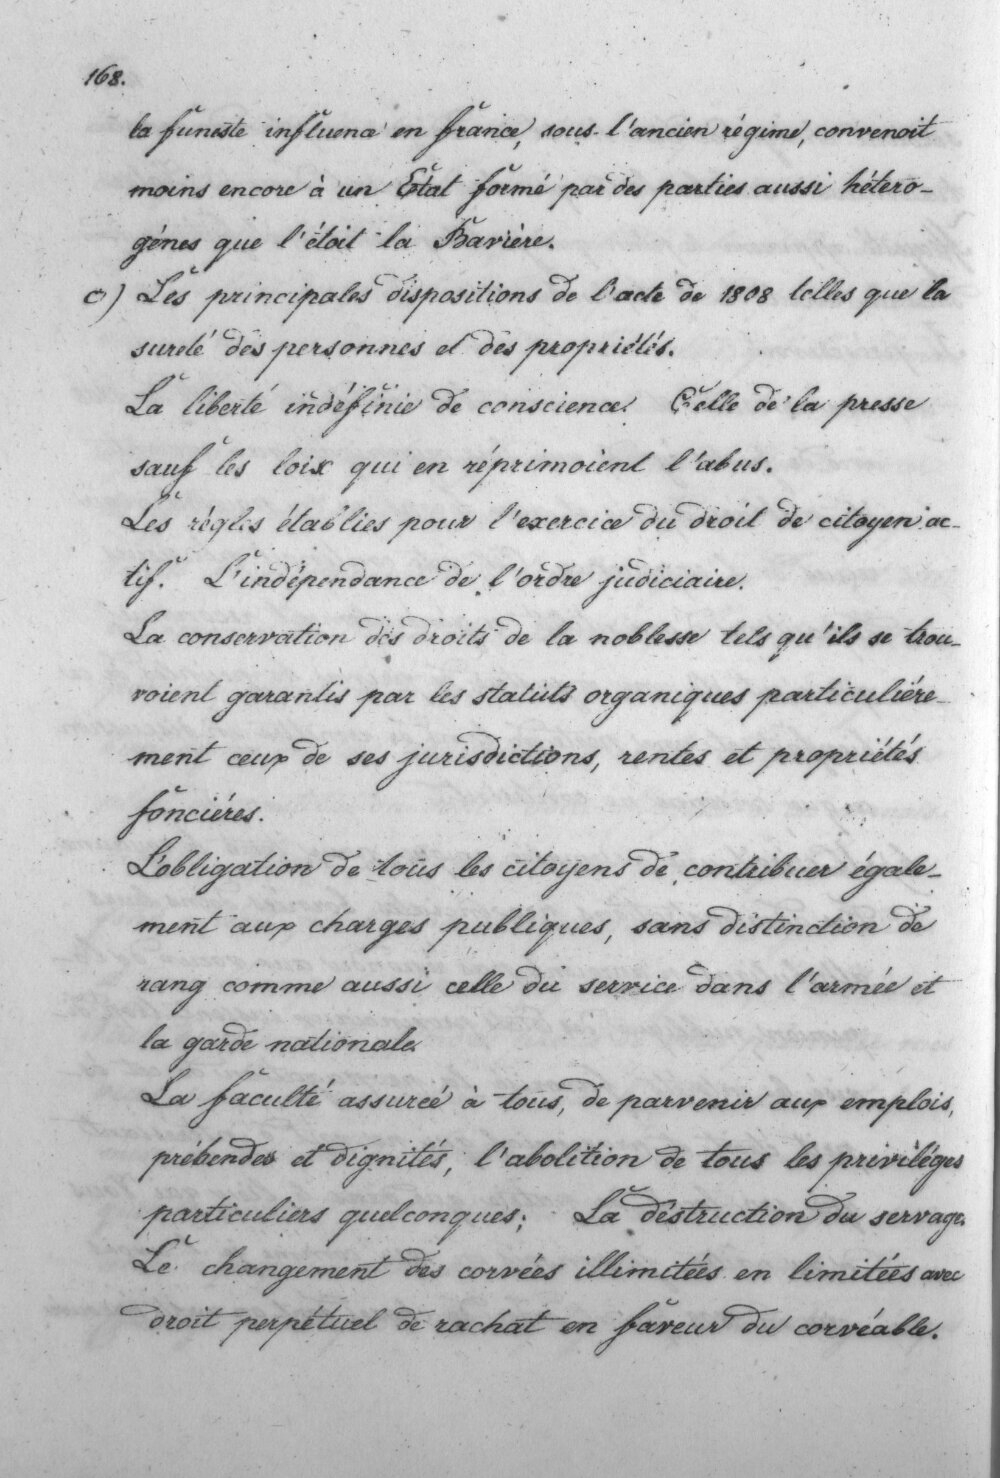 168.
la funeste influence en france, sous l'ancien régime, convenoit
moins encore à un Etat formé par des parties aussi hétero-
génes que l'étoit la Bavière.
c) Les principales dispositions de l'acte de 1808 telles que la
sureté des personnes et des propriétés.
La liberté indéfinie de conscience. Celle de la presse
sauf les loix qui en réprimoient l'abus.
Les régles établies pour l'exercice du droit de citoyen ac-
tif. L'indépendance de l'ordre judiciaire.
La conservation des droits de la noblesse tels qu'ils se trou-
voient garantis par les statuts organiques particuliére-
ment ceux de ses jurisdictions, rentes et propriétés
fonciéres.
L'obligation de tous les citoyens de contribuer égale-
ment aux charges publiques, sans distinction de
rang comme aussi celle du service dans l'armée et
la garde nationale.
La faculté assurée à tous, de parvenir aux emplois,
prébendes et dignités, l'abolition de tous les priviléges
particuliers quelconques; La destruction du servage.
Le changement des corvées illimitées en limitées avec
droit perpétuel de rachat en faveur du corvéable.